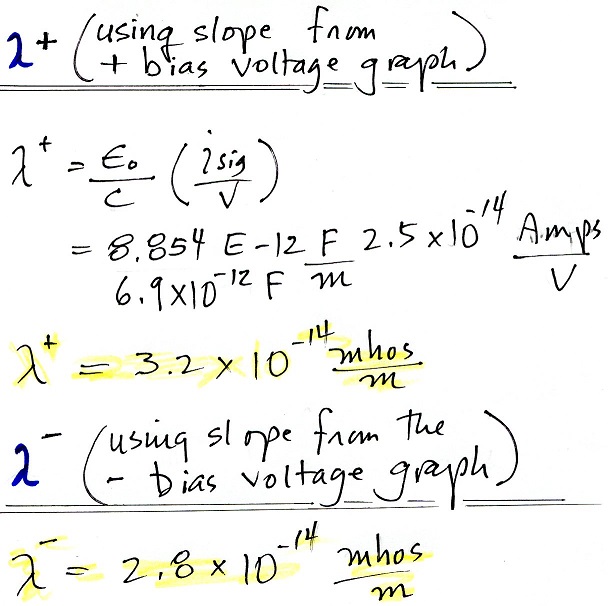 λ+ (using slope from
+ bias voltage graph)
λ+ = ε₀/C (isig/V)
= 8.854 E-12 F/m 2.5 x 10^-14 Amps/V
6.9 x 10^-12 F
λ+ = 3.2 x 10^-14 mhos/m
λ- (using slope from the
- bias voltage graph)
λ- = 2.8 x 10^-14 mhos/m